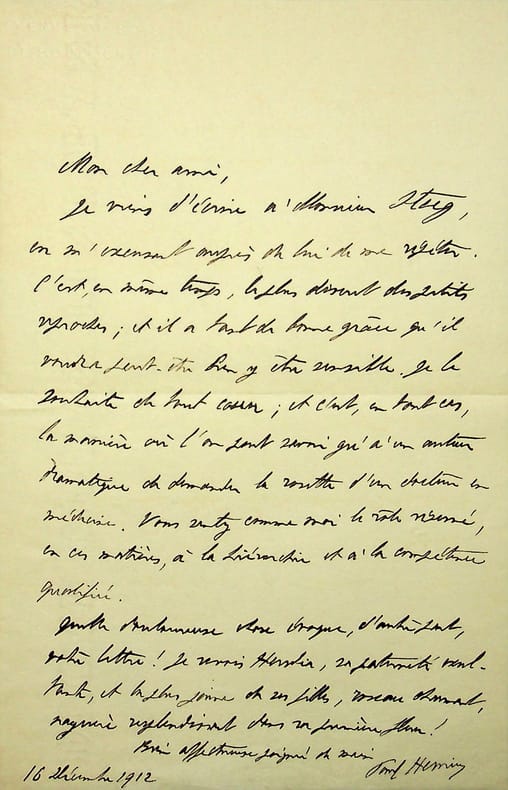 Mon cher ami,
Je viens d'écrire à Monsieur Steeg,
en m'excusant auprès de lui de me répéter.
C'est, en même temps, le plus discret des petits
reproches ; et il a tant de bonne grâce qu'il
voudra peut-être bien y être sensible. Je le
souhaite de tout cœur ; et c'est, en tout cas,
la manière où l'on peut savoir gré à un auteur
dramatique de demander la rosette d'un docteur en
médecine. Vous sentez comme moi le rôle réservé,
en ces matières, à la hiérarchie et à la compétence
qualifiée.
Quelle douloureuse chose évoque, d'autre part,
votre lettre ! Je revois Heredia, sa paternité
et la plus jeune de ses filles, roseau charmant,
naguère resplendissant dans sa première fleur !
Bien affectueuse poignée de main
Paul Hervieu
16 Décembre 1912